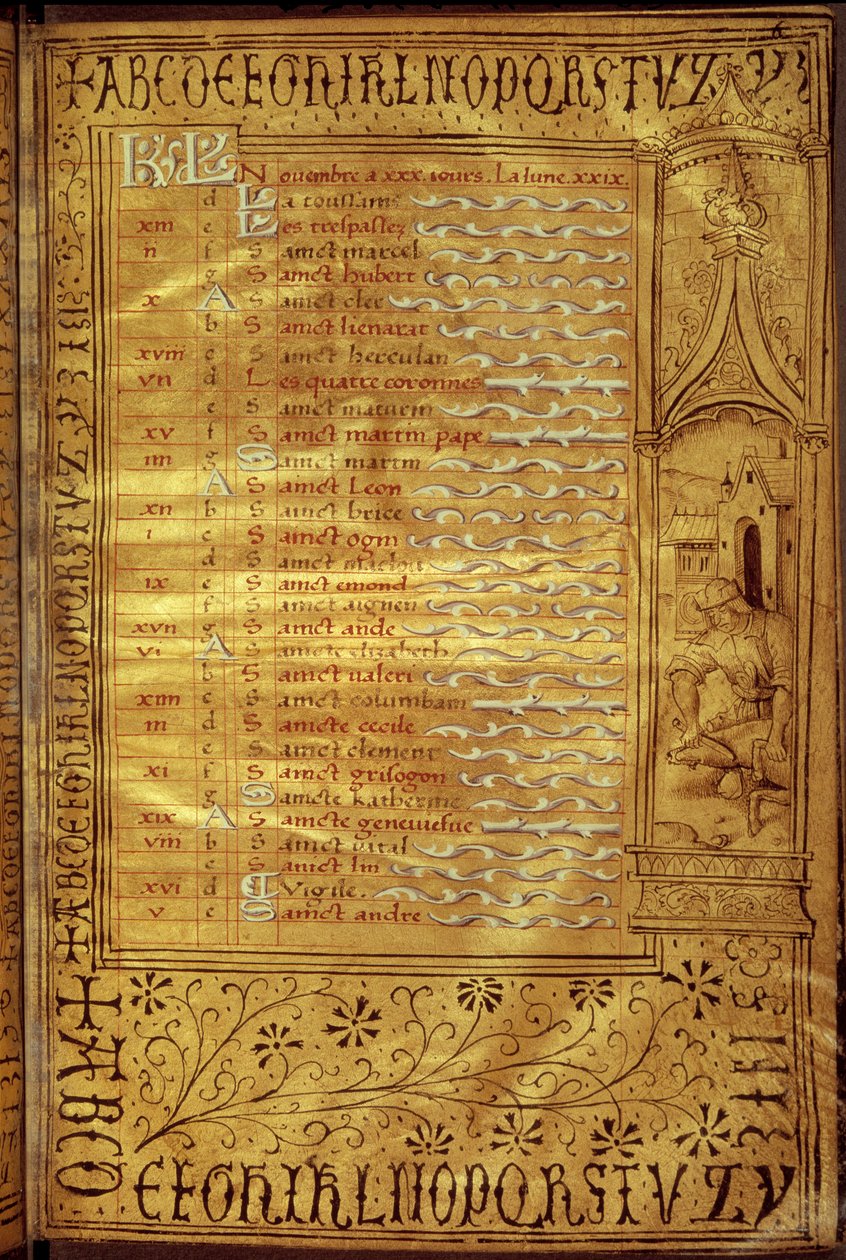 6
+ABCDEFGHIKLNOPQRSTVZ
KL Nouembre a xxx. iours. La lune. xxix.
d La toussains
xiii e Les trespassez
ii f Sainct marcel
g Sainct hubert
x A Sainct cler
b Sainct lienarat
xviii c Sainct herculan
vii d Les quatre coronnes
e Sainct maturin
xv f Sainct martin pape
iiii g Sainct martin
A Sainct Leon
xii b Sainct brice
i c Sainct ogni
d Sainct maclou
ix e Sainct emond
f Sainct aignen
xvii g Sainct ande
vi A Saincte elizabeth
b Sainct valeri
xiiii c Sainct columbam
iii d Saincte cecile
e Sainct clement
xi f Sainct grisogon
g Saincte katherine
xix A Saincte geneuiefue
viii b Sainct vital
c Sainct lin
xvi d Vigile.
v e Sainct andre
+ABCDEFGHIKLNOPQRSTVZ
+ABCD
EFGHIKLNOPQRSTVZ